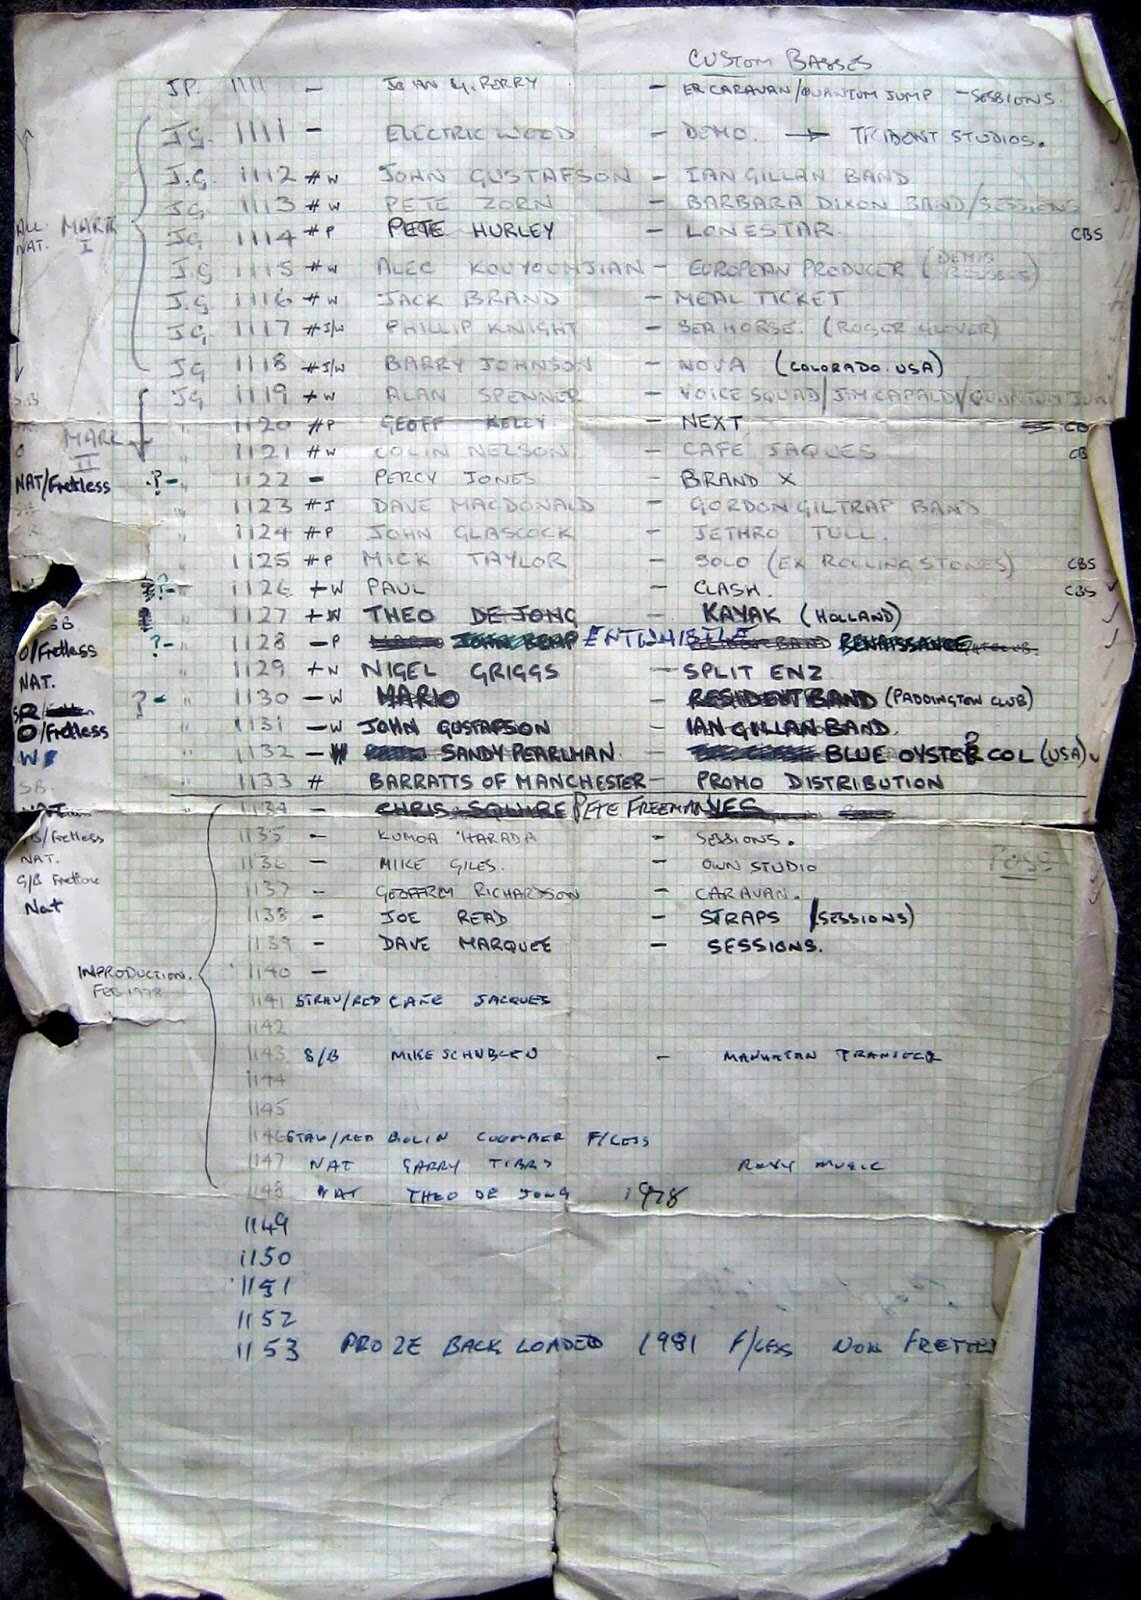 CUSTOM BASSES
JP. 1111 - JOHN G. PERRY - EX CARAVAN/QUANTUM JUMP - SESSIONS.
JG. 1111 - ELECTRIC WOOD - DEMO. → TRIDENT STUDIOS.
J.G 1112 # W JOHN GUSTAFSON - IAN GILLAN BAND
JG 1113 # W PETE ZORN - BARBARA DIXON BAND/SESSIONS
ALL NAT. MARK I JG 1114 # P PETE HURLEY - LONESTAR. CBS
J.G 1115 # W ALEC KOUYOUMJIAN - EUROPEAN PRODUCER (DEMIS ROUSSOS)
J.G. 1116 # W JACK BRAND - METAL TICKET
JG. 1117 # J/W PHILLIP KNIGHT - SEAHORSE. (ROGER GLOVER)
JG 1118 # J/W BARRY JOHNSON - NOVA (COLORADO. USA)
S.B JG 1119 + W ALAN SPENNER - VOICE SQUAD/JIM CAPALDI/QUANTUM JUM
MARK II " 1120 # P GEOFF KELLY - NEXT CB
O " 1121 # W COLIN NELSON - CAFE JAQUES CB
NAT/Fretless -?- " 1122 - PERCY JONES - BRAND X
SB " 1123 # J DAVE MACDONALD - GORDON GILTRAP BAND
R " 1124 # P JOHN GLASCOCK - JETHRO TULL.
" 1125 # P MICK TAYLOR - SOLO (EX ROLLING STONES) CBS
?- " 1126 + W PAUL - CLASH. CBS ✓
SB. " 1127 + W THEO DE JONG - KAYAK (HOLLAND) ✓
O/Fretless ?- " 1128 - P MARIO JOHN CAMP ENTWHISTLE RESIDENT BAND RENAISSANCE
NAT. " 1129 + W NIGEL GRIGGS - SPLIT ENZ
SR ?- " 1130 - W MARIO - RESIDENT BAND (PADDINGTON CLUB)
O/Fretless " 1131 - W JOHN GUSTAFSON - IAN GILLAN BAND.
W " 1132 - W SANDY PEARLMAN. - BLUE OYSTER COL (USA) ✓
SB. " 1133 # BARRATTS OF MANCHESTER - PROMO DISTRIBUTION
NAT. 1134 - CHRIS SQUIRE PETE FREEMAN YES
/Fretless 1135 - KUMOA HARADA - SESSIONS.
NAT. 1136 - MIKE GILES. - OWN STUDIO
S/B Fretless 1137 - GEOFFREY RICHARDSON - CARAVAN.
Nat 1138 - JOE READ - STRAPS (SESSIONS)
1139 - DAVE MARQUEE - SESSIONS.
INPRODUCTION. FEB 1978 1140 -
1141 STRAW/RED CAFE JACQUES
1142
1143 S/B MIKE SCHUBLEN - MANHATTAN TRANSFER
1144
1145
1146 STRAW/RED COLIN F/LESS
1147 NAT GARRY TIBBS ROXY MUSIC
1148 NAT THEO DE JONG 1978
1149
1150
1151
1152
1153 PROZE BACK LOADED 1981 F/LESS NOW FRETTED